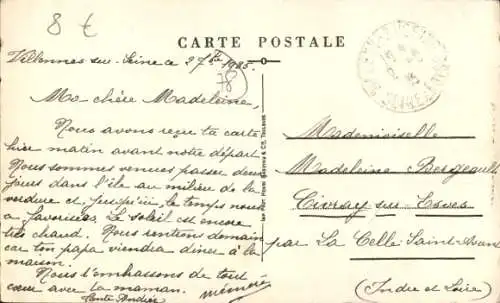 8 €
CARTE POSTALE
Villennes sur Seine ce 2 7bre 1925.
78
Ma chère Madeleine,
Nous avons reçu ta carte
hier matin avant notre départ.
Nous sommes venues passer deux
jours dans l'île au milieu de la
verdure et jusqu'ici, le temps nous
a favorisés. Le soleil est encore
très chaud. Nous rentrons demain
car ton papa viendra diner à la
maison.
Nous t'embrassons de tout
cœur avec ta maman.
Mademoiselle
Madeleine Bergeault
Civray sur Esves
par La Celle Saint-Avant
(Indre et Loire)